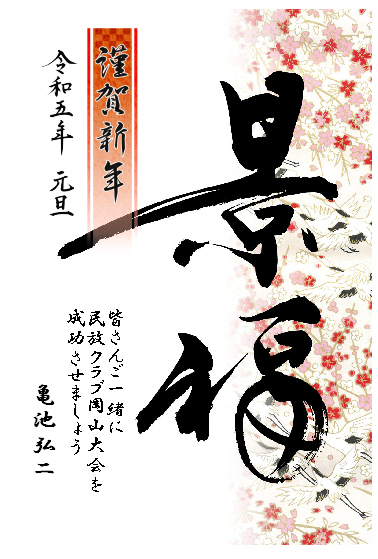 景福
謹賀新年
令和五年 元旦
皆さんご一緒に
民放クラブ岡山大会を
成功させましょう
亀池弘二